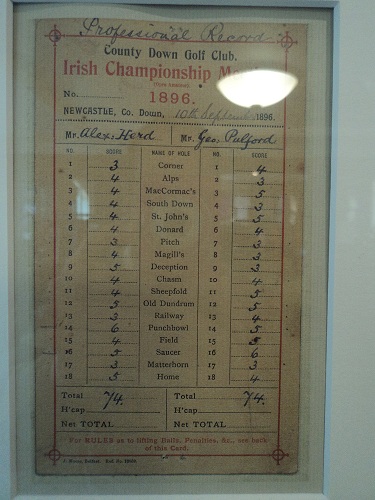 Professional Record
County Down Golf Club.
Irish Championship
1896.
No.
NEWCASTLE, Co. Down, 10th September 1896.
Mr. Alex. Herd Mr. Geo. Pulford
NO. SCORE NAME OF HOLE NO. SCORE
1 3 Corner 1 4
2 4 Alps 2 3
3 4 MacCormac's 3 5
4 4 South Down 4 3
5 4 St. John's 5 5
6 4 Donard 6 4
7 3 Pitch 7 3
8 4 Magill's 8 3
9 5 Deception 9 3
10 4 Chasm 10 4
11 4 Sheepfold 11 5
12 5 Old Dundrum 12 5
13 3 Railway 13 4
14 6 Punchbowl 14 5
15 4 Field 15 5
16 5 Saucer 16 6
17 3 Matterhorn 17 3
18 5 Home 18 4
Total 74. Total 74.
H'cap H'cap
Net TOTAL Net TOTAL
For RULES as to lifting Balls, Penalties, &c., see back
of this Card.